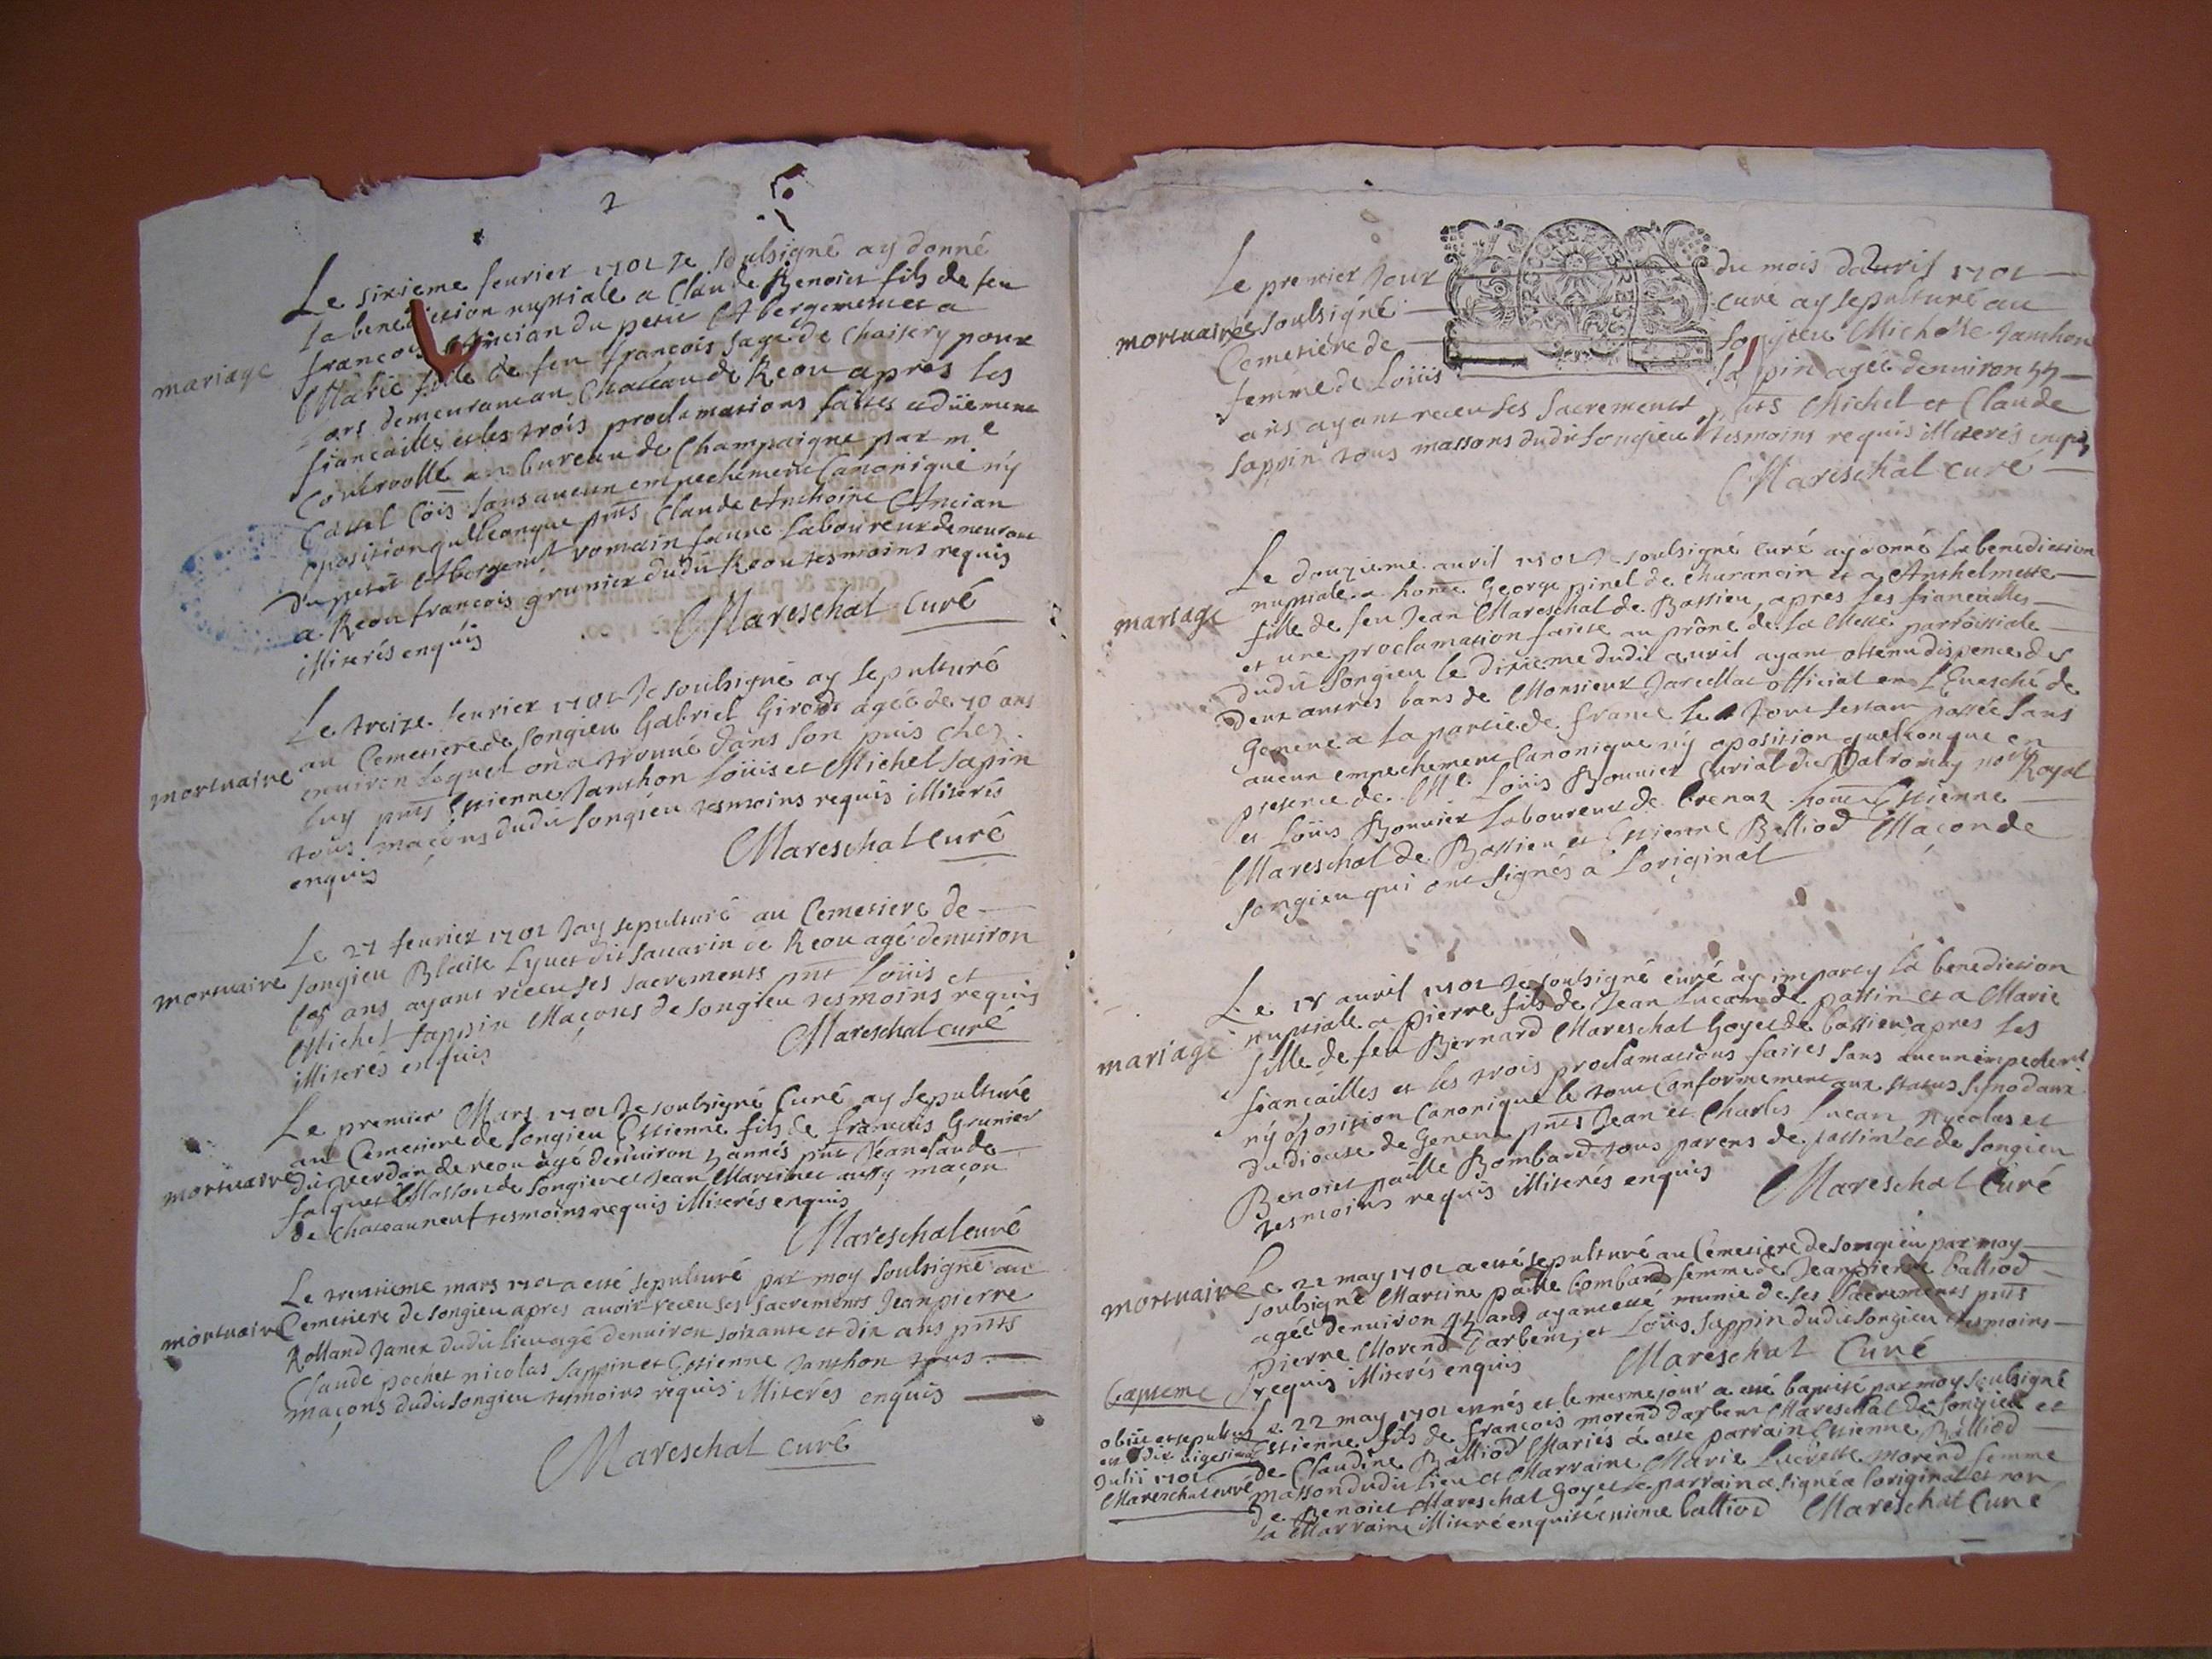 2
Le sixieme feurier 1701 Je soulsigné ay donné
la benediction nuptiale a Claude Benoist fils de feu
francois Ancian du petit Abergement et a
mariage
Marie fille de feu francois sage de Chaisery pour
lors demeurant au Chateau de Reou apres les
fiancailles et les trois proclamations faittes et düement
Controollé au bureau de Champaigne par me
Cattel Cõis sans aucun empechement Canonique n'y
oposition quelconque pñts Claude Anthoine Ancian
du petit Abergemt romain faure laboureur demeurant
a Reou francois grunier dudit Reou tesmoins requis
illiterés enquis Mareschal curé
Le treize feurier 1701 Je soulsigné ay sepulturé
au Cemetiere de songieu Gabriel Girod agée de 70 ans
mortuaire
enuiron lequel on a trouué dans son puis chez
luy pñts Estienne Janthon Loüis et Michel sapin
tous maçons dudit songieu tesmoins requis illiterés
enquis Mareschal curé
Le 27 feurier 1701 Jay sepulturé au Cemetiere de
mortuaire
songieu Blaise Lyuet dit sauarin de Reou agé denuiron
ans ayant receu ses sacrements pñt Loüis et
Michel sappin Maçons de songieu tesmoins requis
illiterés enquis Mareschal curé
Le premier Mars 1701 Je soulsigné Curé ay sepulturé
au Cemetiere de songieu Estienne fils de francois Grunier
mortuaire
dit verdan de reou agé denuiron 5 années pñt Jean claude
falquet Masson de songieu et Jean Martinet aussy maçon
de Chateauneuf tesmoins requis illiterés enquis
Mareschal curé
Le trentieme mars 1701 a esté sepulturé par moy soulsigné au
mortuaire
Cemetiere de songieu apres auoir receu ses sacrements Jeanpierre
Rolland Janex dudit lieu agé denuiron soixante et dix ans pñts
Claude pochet nicolas sappin et Estienne Janthon tous
maçons dudit songieu tesmoins requis illiterés enquis
Mareschal curé
Le premier Jour du mois dauril 1701
mortuaire
soulsigné curé ay sepulturé au
Cemetiere de songieu Michelle Janthon
femme de Loüis sappin agée denuiron 55
ans ayant receu ses sacrements pñts Michel et Claude
sappin tous massons dudit songieu tesmoins requis illiterés enquis
Mareschal curé
Le douzieme auril 1701 Je soulsigné curé ay donné la benediction
nuptiale a home George pinel de Chutancin et a Anthelmette
mariage
fille de feu Jean Mareschal de Bassieu, apres les fiancailles
et une proclamation faitte au prône de la Messe parroissiale
dudit songieu le dixieme dudit auril ayant obtenu dispence des
deux autres bans de Monsieur Jarcellat official en L'Euesché de
Geneue a la partie de france le Jour sestam passée sans
aucun empechement Canonique n'y oposition quelconque en
presence de Me Loüis Bouuier Curial du Valromey nore Royal
et Loüis Bouuier laboureur de brenaz home Estienne
Mareschal de Bassieu et Estienne Balliod Maçon de
songieu qui ont signés a Loriginal
Le 18 auril 1701 Je soulsigné curé ay imparty la benediction
nuptiale a pierre fils de Jean Lucan de passin et a Marie
mariage
fille de feu Bernard Mareschal Goyet de bassieu apres les
fiancailles et les trois proclamations faites sans aucun impechemt
n'y oposition Canonique le tout Conformement aux status sinodaux
du diocese de Geneue pñts Jean et Charles Lucan, nycolas et
Benoist paille Bombard tous parens de passin et de songieu
tesmoins requis illiterés enquis Mareschal Curé
mortuaire
Le 21 may 1701 a esté sepulturé au Cemetiere de songieu par moy
soulsigné Martine paille bombard femme de Jeanpierre balliod
agée denuiron 45 ans ayant esté munie de ses sacrements pñts
pierre Morend Tarbent, et Loüis sappin dudit songieu tesmoins
requis illiterés enquis Mareschal Curé
baptême
Le 22 may 1701 est nés et le mesme jour a esté baptisé par moy soulsigné
Estienne fils de francois morend darbent Mareschal de songieu et
de Claudine Balliod Mariés a esté parrain Estienne Balliod
masson dudit lieu et Marraine Marie Lucrette Morend femme
de Benoist Mareschal Goyet le parrain a signé a loriginal et non
la Marraine illiteré enquise Estienne balliod Mareschal Curé
obiit et sepultus
est die vigesima
Julii 1701
Mareschal curé